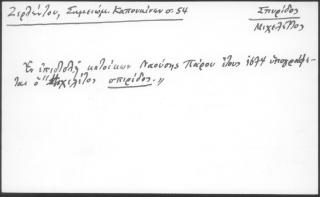 Ζερλέντου, Σημείωμ. Καπουκίνων σ. 54
Σπυρίδος
Μιχελέτος
Ἐν ἐπιστολῇ κατοίκων Ναούσης Πάρου ἔτους 1674 ὑπογράφε-
ται ὁ "Μιχελέτος σπιρίδος."